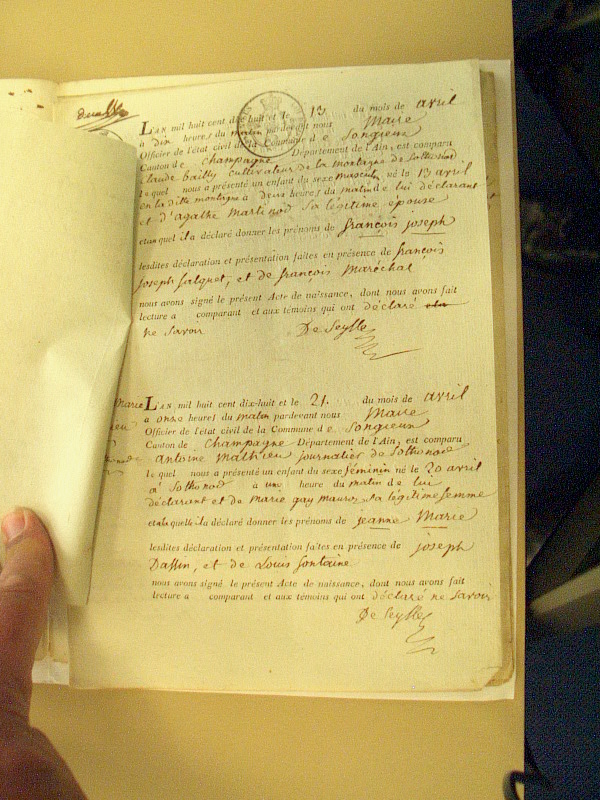 L'AN mil huit cent dix-huit et le 13 du mois de avril
à dix heures du matin pardevant nous Maire
Officier de l'état civil de la Commune de Songieux
Canton de Champagne Département de l'Ain, est comparu
Claude bailly cultivateur de la montagne de Sothonod
le quel nous a présenté un enfant du sexe masculin né le 13 avril
en la ditte montagne à deux heures du matin de lui déclarant
et d'agathe Martinod sa légitime épouse
et auquel il a déclaré donner les prénoms de françois joseph
lesdites déclaration et présentation faites en présence de françois
joseph falquet, et de françois Maréchal
nous avons signé le présent Acte de naissance, dont nous avons fait
lecture a comparant et aux témoins qui ont déclaré
ne savoir DeSeyssel
Marie L'AN mil huit cent dix-huit et le 21. du mois de avril
à onze heures du matin pardevant nous Maire
Officier de l'état civil de la Commune de Songieux
Canton de Champagne Département de l'Ain, est comparu
antoine Mathieu journalier de Sothonod
le quel nous a présenté un enfant du sexe féminin né le 20 avril
à Sothonod à une heure du matin de lui
déclarant et de Marie gay sa légitime femme
et à laquelle il a déclaré donner les prénoms de jeanne Marie
lesdites déclaration et présentation faites en présence de joseph
Dassin, et de Louis fontaine
nous avons signé le présent Acte de naissance, dont nous avons fait
lecture a comparant et aux témoins qui ont déclaré ne savoir
DeSeyssel